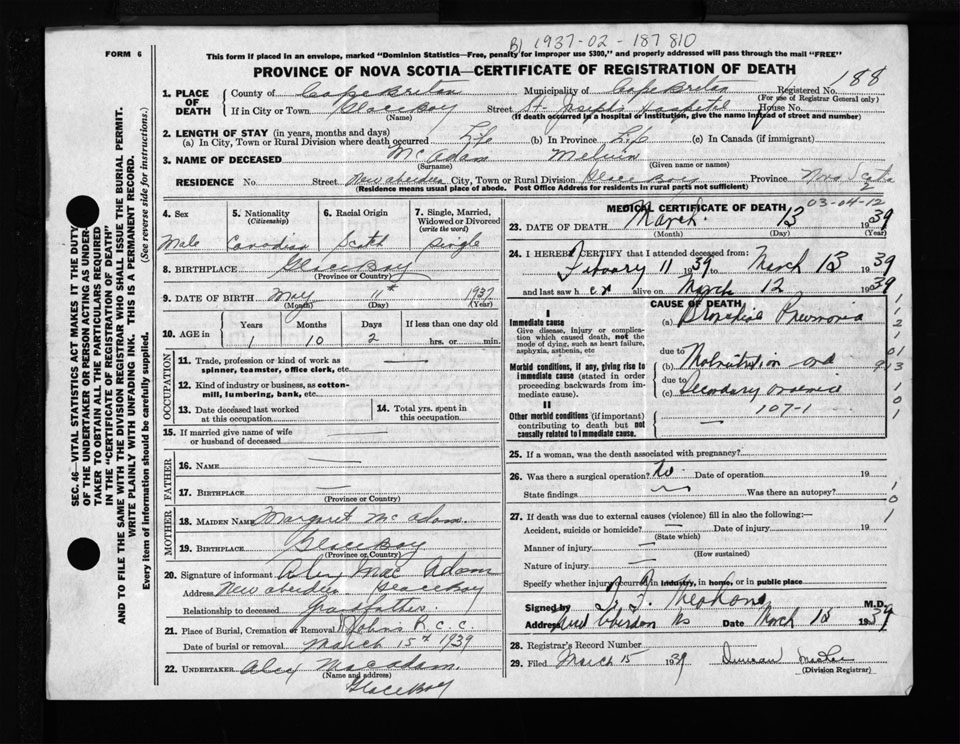 B) 1937-02-187810
FORM 6
This form if placed in an envelope, marked "Dominion Statistics—Free, penalty for improper use $300," and properly addressed will pass through the mail "FREE"
PROVINCE OF NOVA SCOTIA—CERTIFICATE OF REGISTRATION OF DEATH
188
1. PLACE OF DEATH County of Cape Breton Municipality of Cape Breton Registered No.
(For use of Registrar General only)
If in City or Town Glace Bay Street St. Josephs Hospital House No.
(Name) (If death occurred in a hospital or institution, give the name instead of street and number)
2. LENGTH OF STAY (in years, months and days)
(a) In City, Town or Rural Division where death occurred Life (b) In Province Life (c) In Canada (if immigrant)
3. NAME OF DECEASED McAdam Melvin
(Surname) (Given name or names)
RESIDENCE No. Street New Aberdeen City, Town or Rural Division Glace Bay Province Nova Scotia
(Residence means usual place of abode. Post Office Address for residents in rural parts not sufficient)
2
SEC. 46—VITAL STATISTICS ACT MAKES IT THE DUTY
OF THE UNDERTAKER OR PERSON ACTING AS UNDER-
TAKER TO OBTAIN ALL THE PARTICULARS REQUIRED
IN THE "CERTIFICATE OF REGISTRATION OF DEATH"
AND TO FILE THE SAME WITH THE DIVISION REGISTRAR WHO SHALL ISSUE THE BURIAL PERMIT.
WRITE PLAINLY WITH UNFADING INK. THIS IS A PERMANENT RECORD.
Every item of information should be carefully supplied. (See reverse side for instructions.)
4. Sex 5. Nationality (Citizenship) 6. Racial Origin 7. Single, Married, Widowed or Divorced (write the word)
Male Canadian Scotch Single
8. BIRTHPLACE Glace Bay
(Province or Country)
9. DATE OF BIRTH May 11th 1937
(Month) (Day) (Year)
10. AGE in Years Months Days If less than one day old
1 10 2 hrs. or min.
OCCUPATION
11. Trade, profession or kind of work as spinner, teamster, office clerk, etc.
12. Kind of industry or business, as cotton-mill, lumbering, bank, etc.
13. Date deceased last worked at this occupation
14. Total yrs. spent in this occupation
15. If married give name of wife or husband of deceased
FATHER
16. NAME
17. BIRTHPLACE
(Province or Country)
MOTHER
18. MAIDEN NAME Margaret McAdam.
19. BIRTHPLACE Glace Bay
(Province or Country)
20. Signature of informant Alex MacAdam
Address New Aberdeen Glace Bay
Relationship to deceased Grandfather.
21. Place of Burial, Cremation or Removal St Johns R.C.C.
Date of burial or removal March 15th 1939
22. UNDERTAKER Alex MacAdam.
(Name and address)
Glace Bay
MEDICAL CERTIFICATE OF DEATH
03-04-12
23. DATE OF DEATH March 13 1939
(Month) (Day) (Year)
24. I HEREBY CERTIFY that I attended deceased from:
Febuary 11 1939 to March 13 1939
and last saw h er alive on March 12 1939
CAUSE OF DEATH
I
Immediate cause (a) Bronchial Pneumonia
Give disease, injury or complication which caused death, not the mode of dying, such as heart failure, asphyxia, asthenia, etc
Morbid conditions, if any, giving rise to immediate cause (stated in order proceeding backwards from immediate cause).
due to
(b) Malnutrition and
due to
(c) Secondary anaemia
107-1
II
Other morbid conditions (if important) contributing to death but not causally related to immediate cause.
25. If a woman, was the death associated with pregnancy?
26. Was there a surgical operation? No Date of operation 19
State findings Was there an autopsy?
27. If death was due to external causes (violence) fill in also the following:—
Accident, suicide or homicide? Date of injury 19
(State which)
Manner of injury
(How sustained)
Nature of injury
Specify whether injury occurred in industry, in home, or in public place
Signed by M.D.
Address New Aberdeen NS Date March 13 1939
28. Registrar's Record Number
29. Filed March 15 1939 Duncan MacRae
(Division Registrar)